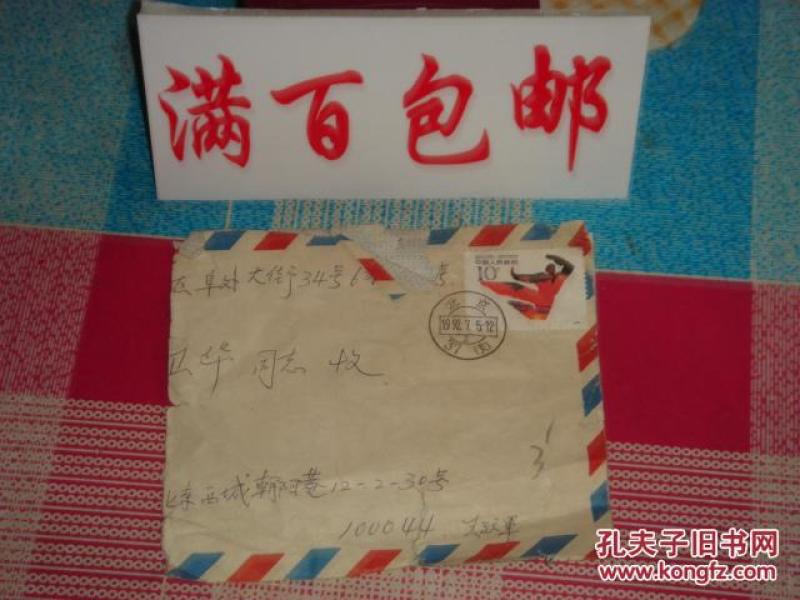 满百包邮
区阜外大街34号6
号
中国人民邮政
10分
北京
1990.7.5.12
37
卫华 同志 收
北京西城朝阳菴12-2-30号
100044
孔夫子旧书网
www.kongfz.com